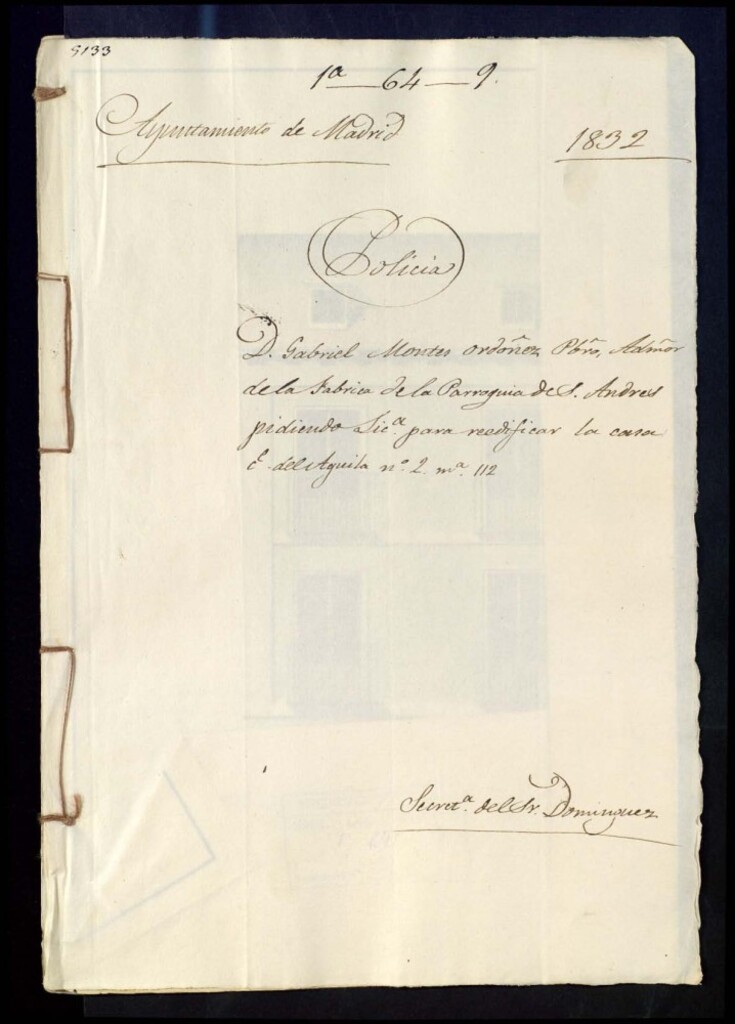 5133
1ª — 64 — 9.
Ayuntamiento de Madrid
1832
Policia
D. Gabriel Montes ordoñez Pbrõ, Admõr
de la Fabrica de la Parroquia de S. Andres
pidiendo Licª. para reedificar la casa
cº. del Aguila nº. 2. mª. 112
Secretª. del Sr. Dominguez